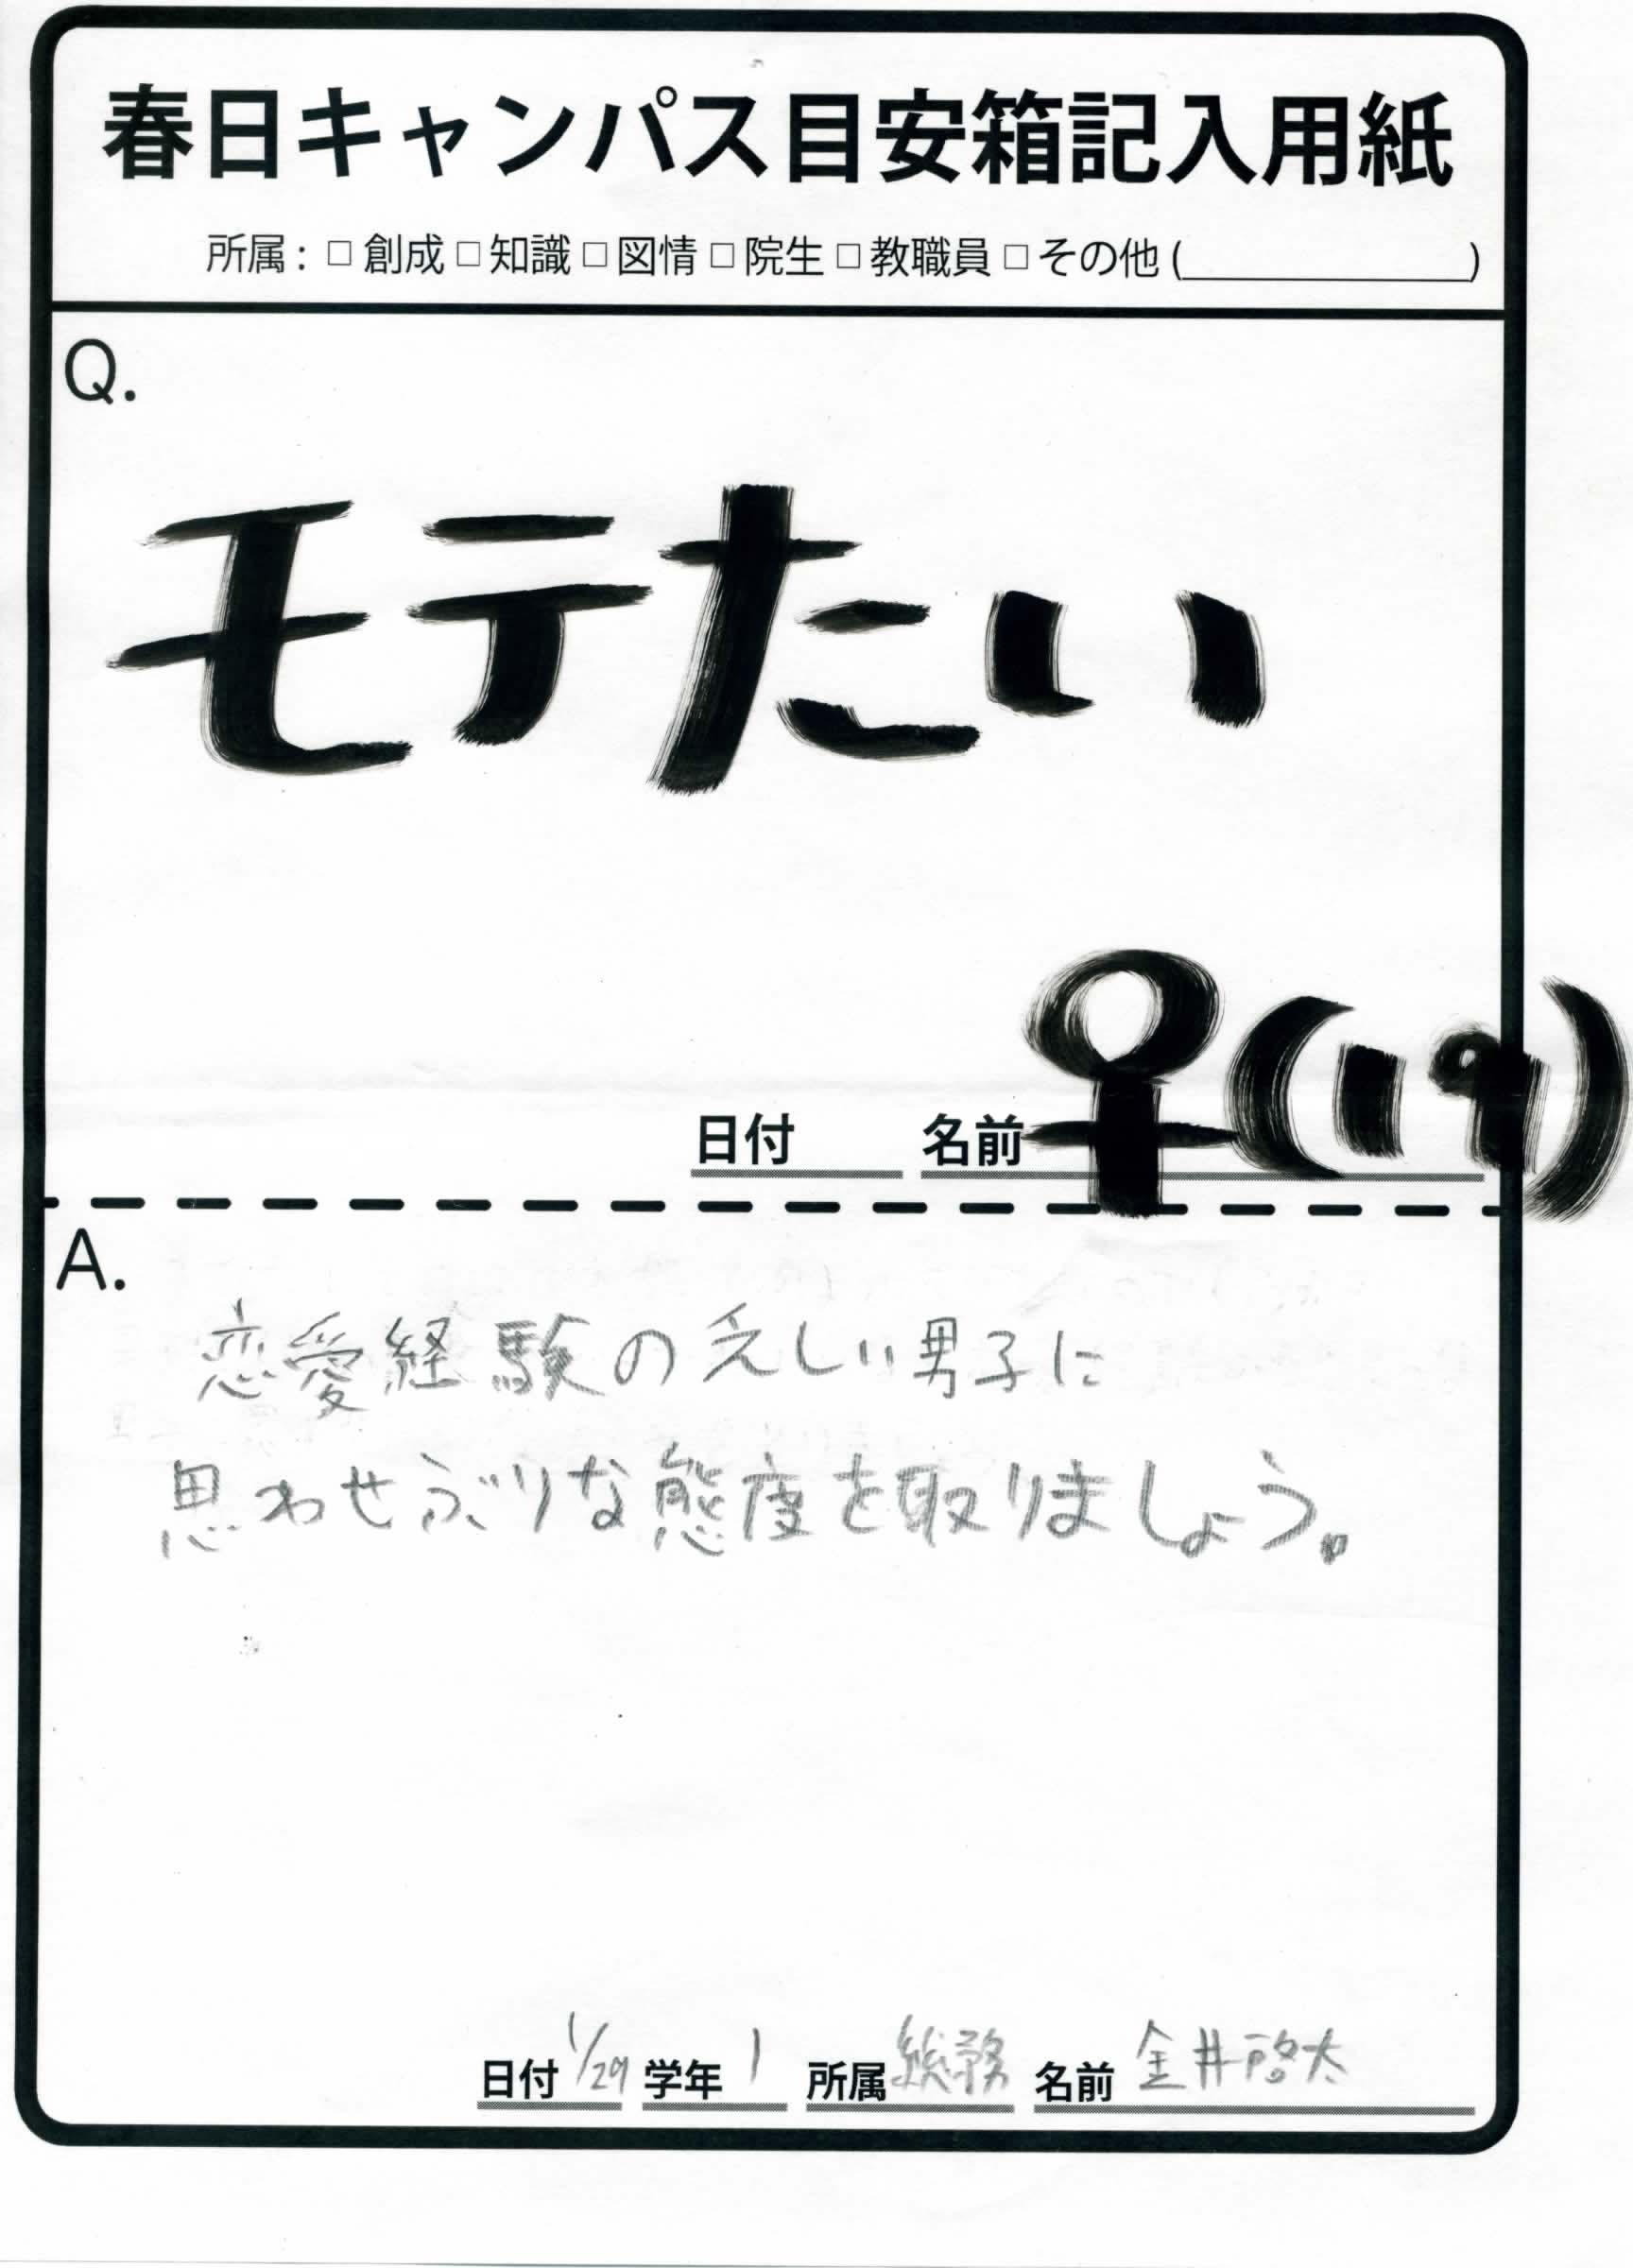 春日キャンパス目安箱記入用紙
所属：□創成□知識□図情□院生□教職員□その他(　　　　)
Q.
モテたい
日付　名前 ♀(19)
A.
恋愛経験の乏しい男子に
思わせぶりな態度を取りましょう。
日付 1/29 学年 1 所属 総務 名前 金井啓太